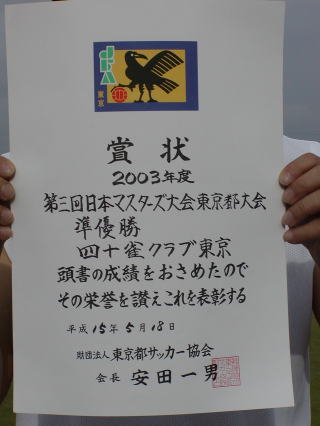 JFA
東京
賞状
2003年度
第三回日本マスターズ大会東京都大会
準優勝
四十雀クラブ東京
頭書の成績をおさめたので
その栄誉を讃えこれを表彰する
平成15年5月18日
財団法人 東京都サッカー協会
会長 安田一男